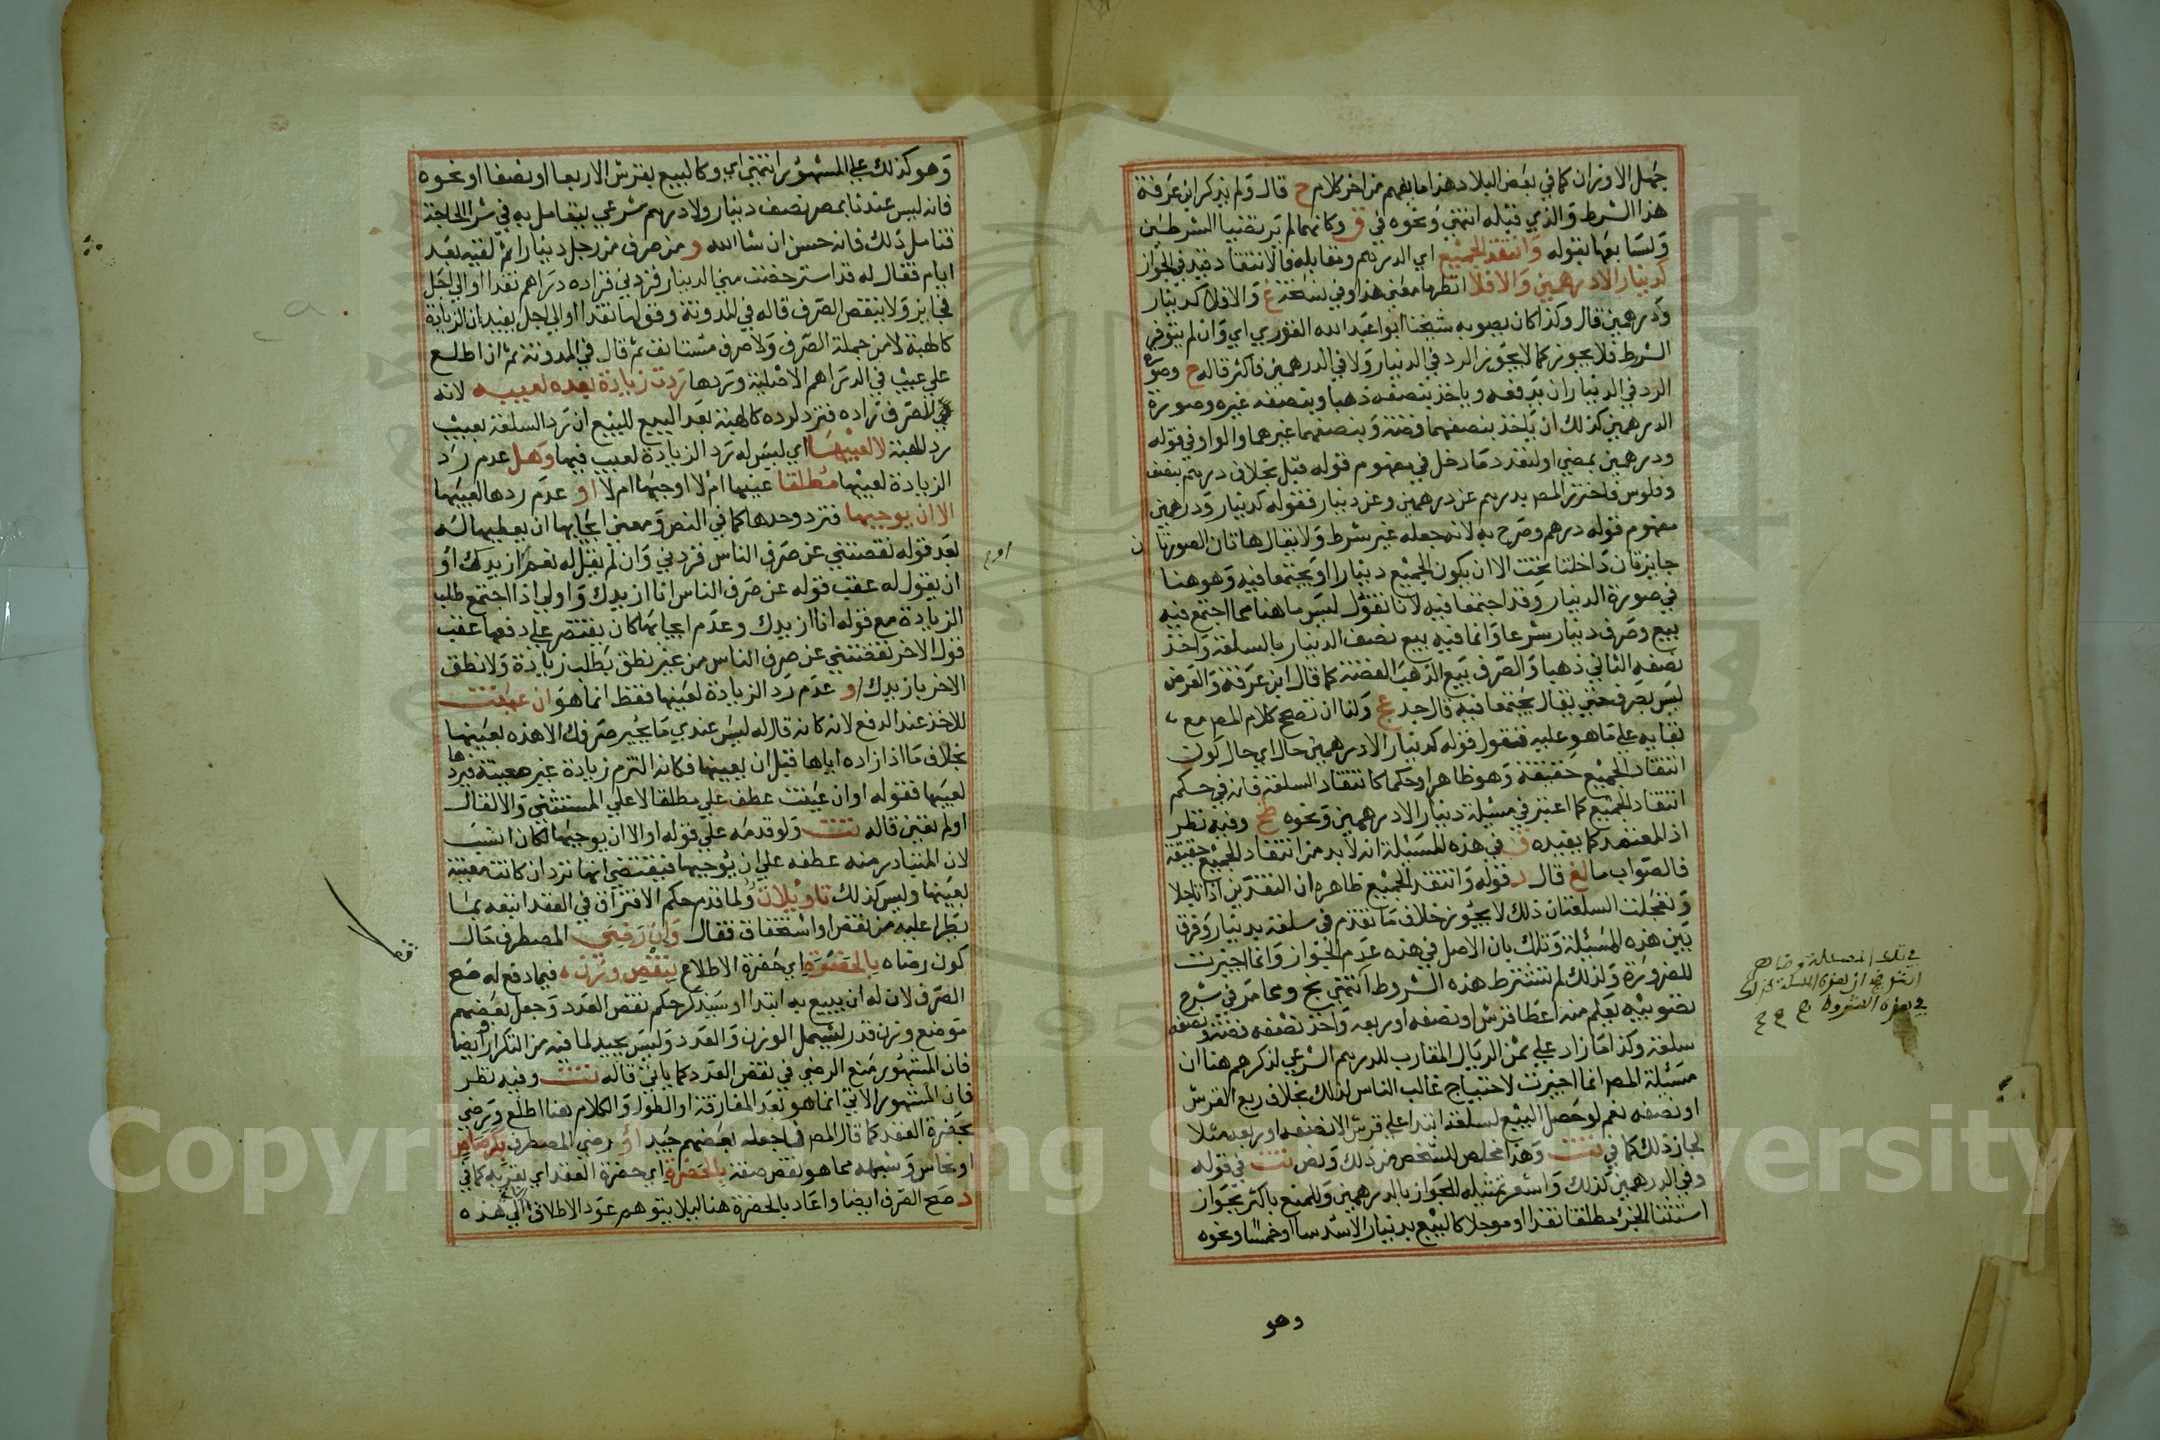 جهل الاوزان كما في بعض البلاد هذا ما يفهم من اخر كلام ح قال ولم يذكر ابن عرفة
هذا الشرط والذي قبله انتهى ونحوه في ق وكانهما لم يرتضيا الشرطين
وانتقد الجميع اي الدرهم ومقابله فالانتقاد قيد في الجواز
كدينار الا درهمين والا فلا انظر ما معنى هذا وفي نسخة غ والا فلا كدينار
ودرهمين قال وكذا كان يصوبه شيخنا ابوا عبد الله القوري اي وان لم يتوفر
الشرط فلا يجوز كما لا يجوز الرد في الدينار ولا في الدرهمين فاكثر قاله ح وصورة
الرد في الدينار ان يدفعه وياخذ بنصفه ذهبا وبنصفه غيره وصورة
الدرهمين كذلك ان ياخذ بنصفهما فضة وبنصفهما غيرهما والواو في قوله
ودرهمين بمعنى او لتعدد ما دخل في مفهوم قوله قبل بخلاف درهم بنصف
وفلوس فاحترز المص بدرهم عن درهمين وعن دينار فقوله كدينار ودرهمين
مفهوم قوله درهم وصرح به لانه جعله غير شرط ولا يقال هاتان الصورتان
جايزتان داخلتا تحت الا ان يكون الجميع دينارا او يجتمعا فيه وهو هنا
في صورة الدينار وقد اجتمعا فيه لانا نقول ليس ما هنا مما اجتمع فيه
بيع وصرف دينار شرعا وانما فيه بيع نصف الدينار بالسلعة واخذ
نصفه الثاني ذهبا والصرف بيع الذهب الفضة كما قال ابن عرفة والفرض
ليس بصرف حتى يقال يجتمعا فيه قال جد عج ولنا ان نصحح كلام المص مع
بقايه على ما هو عليه فنقول قوله كدينار الا درهمين حال اي حال كون
انتقاد الجميع حقيقة وهو ظاهر او حكما كانتقاد السلعة فانه في حكم
انتقاد الجميع كما اعتبر في مسئلة دينار الا درهمين ونحوه طخ وفيه نظر
اذ المعتمد كما يفيده ق في هذه المسئلة انه لا بد من انتقاد الجميع حقيقة
فالصواب ما لغ قال د قوله وانتقد الجميع ظاهره ان النقدين اذا تاجلا
وتعجلت السلعتان ذلك لا يجوز خلاف ما تقدم في سلعة بدينار وفرق
بين هذه المسئلة وتلك بان الاصل في هذه عدم الجواز وانما اجيزت
للضرورة ولذلك لم تشترط هذه الشروط انتهى بخ ومما مر في شرح
نصوبيه يعلم منه اعطا قرش او نصفه او ربعه واخذ نصفه فضة ونصفه
سلعة وكذا ما زاد على ثمن الريال المقارب للدرهم الشرعي لذكرهم هنا ان
مسئلة المص انما اجيزت لاحتياج غالب الناس لذلك بخلاف ربع القرش
او نصفه نعم لو حصل البيع لسلعة ابتدا على قرش الا نصفه او ربعه مثلا
لجاز ذلك كما في تت وهذا مخلص للشخص من ذلك ونص تت في قوله
وفي الدرهمين كذلك واشعر تمثيله للجواز بالدرهمين وللمنع باكثر بجواز
استثنا الجزء مطلقا نقدا او موجلا كالبيع بدينار الا سدسا او خمسا ونحوه
وهو
وهو كذلك على المشهور انتهى اي وكالبيع بقرش الا ربعا او نصفا او نحوه
فانه ليس عندنا بمصر نصف دينار ولا درهم شرعي يتعامل به في شرا الحاجة
فتامل ذلك فانه حسن ان شا الله و من صرف من رجل دينارا ثم لقيه بعد
ايام فقال له قد استرخصت مني الدينار فزدني فزاده دراهم نقدا او الى اجل
فجايز ولا ينقض الصرف قاله في المدونة وقولها نقدا او الى اجل يفيد ان الزيادة
كالهبة لا من جملة الصرف ولا صرف مستانف ثم قال في المدونة ثم ان اطلع
على عيب في الدراهم الاصلية وردها ردت زيادة بعده لعيبه لانه
للصرف زاده فترد لرده كالهبة بعد البيع للبيع ان رد السلعة بعيب
رد الهبة لا لعيبها اي ليس له رد الزيادة لعيب فيها وهل عدم رد
الزيادة لعيبها مطلقا عينها ام لا اوجبها ام لا او عدم ردها لعيبها
الا ان يوجبها فترد وحدها كما في النص ومعنى ايجابها ان يعطيها له
بعد قوله نقصتني عن صرف الناس فزدني وان لم يقل له نعم ازيدك او
ان يقول له عقب قوله عن صرف الناس انا ازيدك واولى اذا اجتمع طلب
الزيادة مع قوله انا ازيدك وعدم ايجابها كان يقتصر على دفعها عقب
قول الاخر نقصتني عن صرف الناس من غير نطق بطلب زيادة ولا نطق
الاخر بازيدك او عدم رد الزيادة لعيبها فقط انما هو ان عينت
للاخذ عند الدفع لانه كانه قال له ليس عندي ما يجبر صرفك الا هذه بعينها
بخلاف ما اذا زاده اياها قبل ان يعينها فكانه التزم زيادة غير معينة فيردها
لعيبها فقوله او ان عينت عطف على مطلقا لا على المستثنى والا لقال
او لم تعين قاله تت ولو قدمه على قوله او الا ان يوجبها لكان انسب
لان المتبادر منه عطفه على ان يوجبها فيقتضي انها ترد ان كانت معينة
بعينها وليس كذلك تاويلان ولما قدم حكم الافتراق في العقد اتبعه بما
يطرا عليه من نقص او استحقاق فقال وان رضي المصطرف حال
كون رضاه بالحضرة اي حضرة الاطلاع بنقص وزن فيما دفع له صح
الصرف لان له ان يبيع به ابتدا وسيذكر حكم نقص العدد وجعل بعضهم
موضع وزن قدر ليشمل الوزن والعدد وليس بجيد لما فيه من التكرار وايضا
فان المشهور منع الرضى في نقص العدد كما ياتي قاله تت وفيه نظر
فان المشهور الاتي انما هو بعد المفارقة او الطول والكلام هنا اطلع ورضي
بحضرة العقد كما قال المص فما جعله بعضهم جيد او رضي المصطرف بكرصاص
او نحاس وشبهه مما هو نقص صفة بالحضرة اي حضرة العقد اي بقربه كما في
د صح الصرف ايضا واعاد بالحضرة هنا ليلا يتوهم عود الاطلاق الى هذه